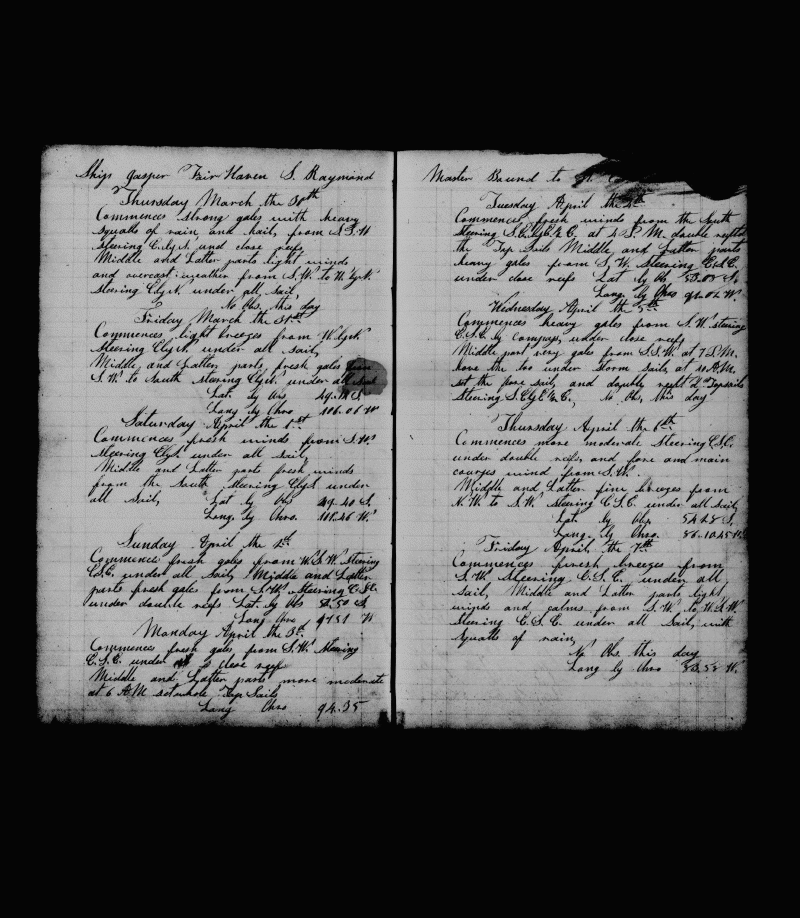 Ship Jasper Fair Haven S. Raymond
Thursday March the 30th
Commences strong gales with heavy
squalls of rain, and hail, from S.S.W
steering E.by N. and close reefs,
Middle and Latter parts light winds
and overcast weather from S.W. to W.by N.
steering E.by N. under all sail
No Obs. this day
Friday March the 31st
Commences light breezes from W.by N.
steering E.by N. under all sail,
Middle, and Latter, parts, fresh gales from
S.W. to South steering E.by N. under all sail
Lat. by Obs
Long by Chro 106.01 W
Saturday April the 1st
Commences fresh winds from S.W.
steering E.by S. under all sail,
Middle and Latter parts fresh winds
from the South steering E.by S. under
all sail, Lat by Obs 49.40 S.
Long. by Chro. 101.46 W.
Sunday April the 2d
Commence fresh gales from W.S.W. steering
E.S.E. under all sail, Middle and Latter
parts fresh gales from S.W. steering E.S.E.
under double reefs Lat. by Obs 50 S
Long Chro 97.51 W
Monday April the 3d.
Commences fresh gales from S.W. steering
E.S.E. under close reef
Middle and Latter parts more moderate
at 6 A.M. set whole Top Sails
Long Chro 94.35
Master Bound to
Tuesday April the 4th
Commences fresh winds from the South
steering at 2 P.M. double reefed
the Top Sails Middle and Latter parts
heavy gales from S.W. steering E.S.E.
under close reefs Lat by Ob S.
Long. by Chro W.
Wednesday April the 5th
Commences heavy gales from S.W. steering
E.S.E. by compass, under close reefs
Middle part very gales from S.S.W. at 7 P.M.
hove the too under Storm Sails, at 10 A.M.
set the fore sail, and double reeft Topsails
steering No Obs, this day
Thursday April the 6th
Commences more moderate steering E.S.E.
under double reefs, and fore and main
courses wind from S.W.
Middle and Latter fine breezes from
N.W. to S.W. steering E.S.E. under all sail,
Lat. by Obs. 54.28 S.
Long. by Chro. 86.10.45 W.
Friday April the 7th
Commences fresh breezes from
S.W. steering E.S.E. under all
sail, Middle and Latter parts light
winds and calms from S.W. to W.S.W.
steering E.S.E. under all sail, with
squalls of rain,
No Obs this day
Long by Chro W.